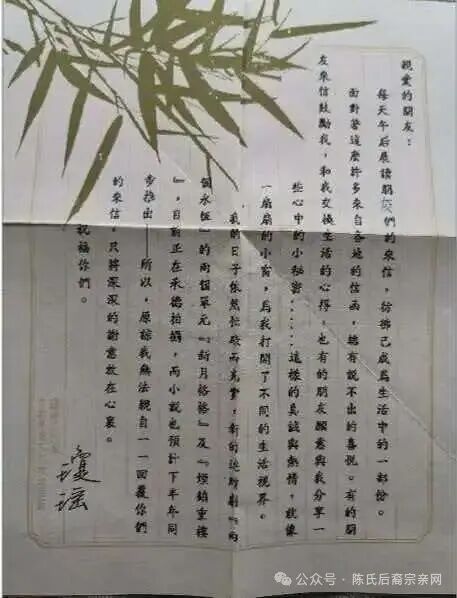 親愛的朋友：
每天午后展讀朋友們的來信，彷彿已成為生活中的一部份。
面對著這麼許多來自各地的信函，總有說不出的喜悅。有的朋
友來信鼓勵我，和我交換生活的心得，也有的朋友願意與我分享一
些心中的小秘密……這樣的真誠與熱情，就像
一扇扇的小窗，為我打開了不同的生活視界。
我的日子依然忙碌而充實，新的連續劇『兩
個永恆』的兩個單元『新月格格』及『煙鎖重樓
』，目前正在承德拍攝，而小說也預計下半年同
步推出——所以，原諒我無法親自一一回覆你們
的來信，只將深深的謝意放在心裏。
祝福你們。
瓊瑤
公众号·陈氏后裔宗亲网